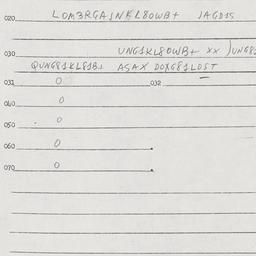 020 LOM3RGAJNKL80WB+ JAGD15
UNG1KL80WB+ XX
030
QUNG81KL81B1 ASAX DOXG81LDST
031 0 032
040 0
050 0
060 0
070 0